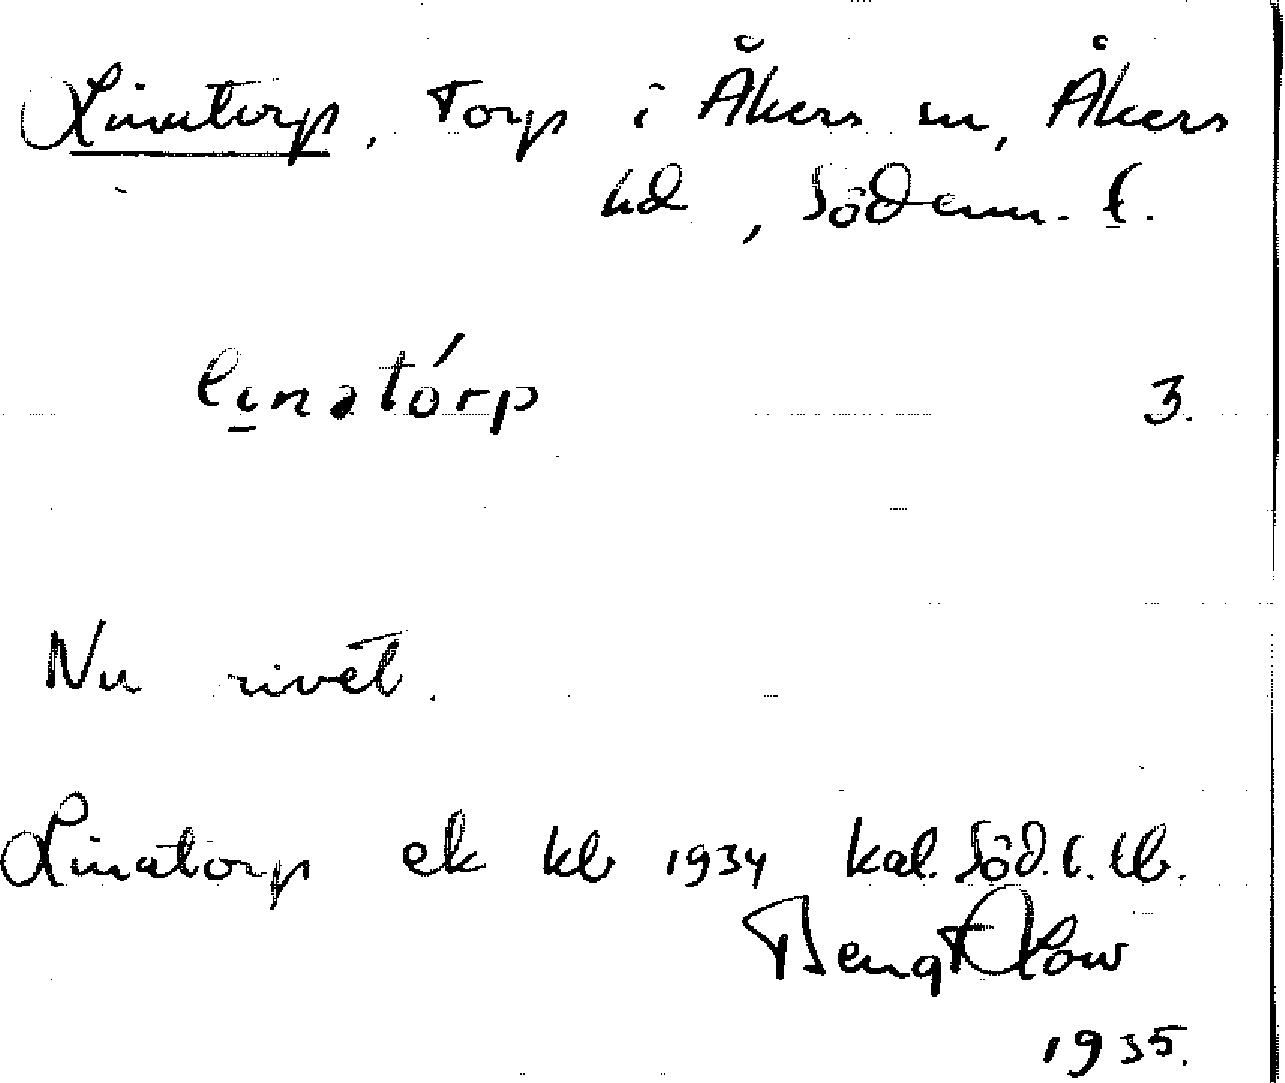 Linatorp, Torp i Åkers sn, Åkers
hd, Söderm. l.
lı̱natórp 3.
Nu rivet.
Linatorp ek kb 1934 kal. Söd. l. lb.
Bengt Olow
1935.